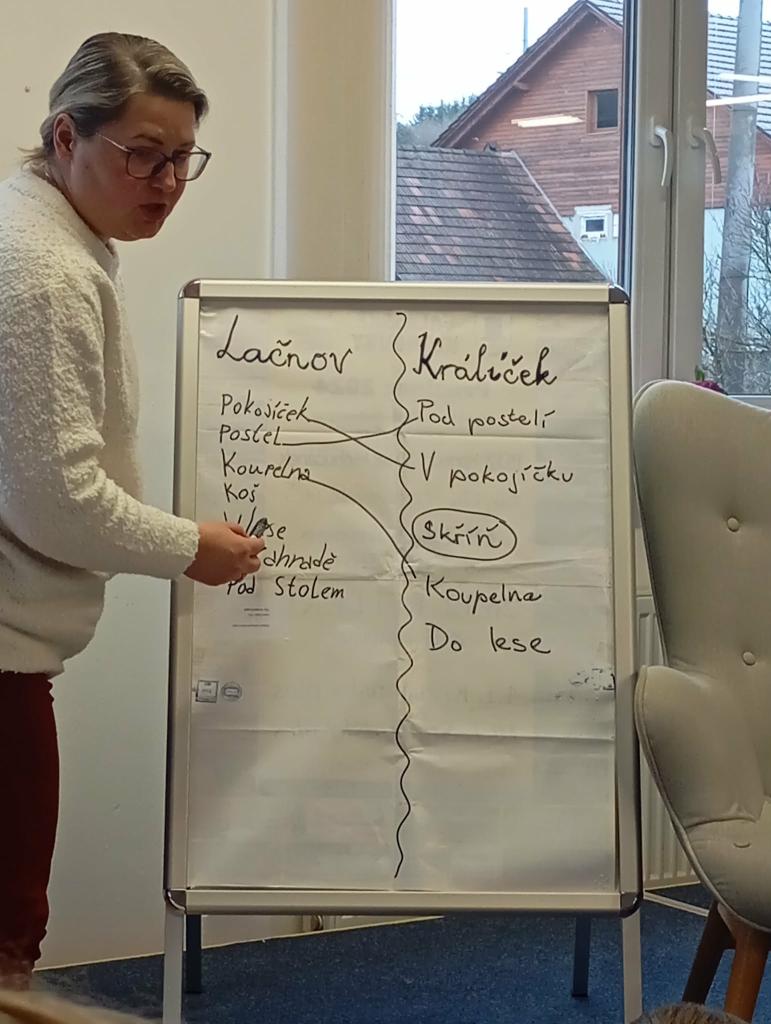 Lačnov
Pokojíček
Postel
Koupelna
Koš
Pod Stolem
Králíček
Pod postelí
V pokojíčku
Skříň
Koupelna
Do lese